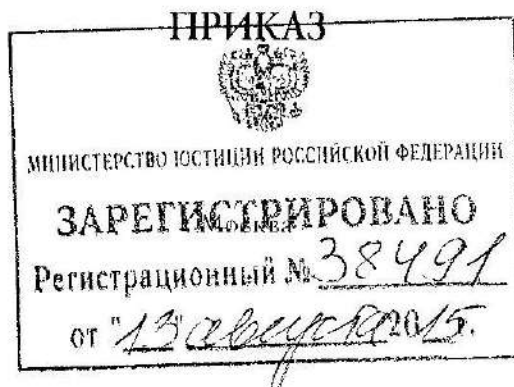 ПРИКАЗ
МИНИСТЕРСТВО ЮСТИЦИИ РОССИЙСКОЙ ФЕДЕРАЦИИ
ЗАРЕГИСТРИРОВАНО
Москва
Регистрационный № 38491
от "13" августа 2015.